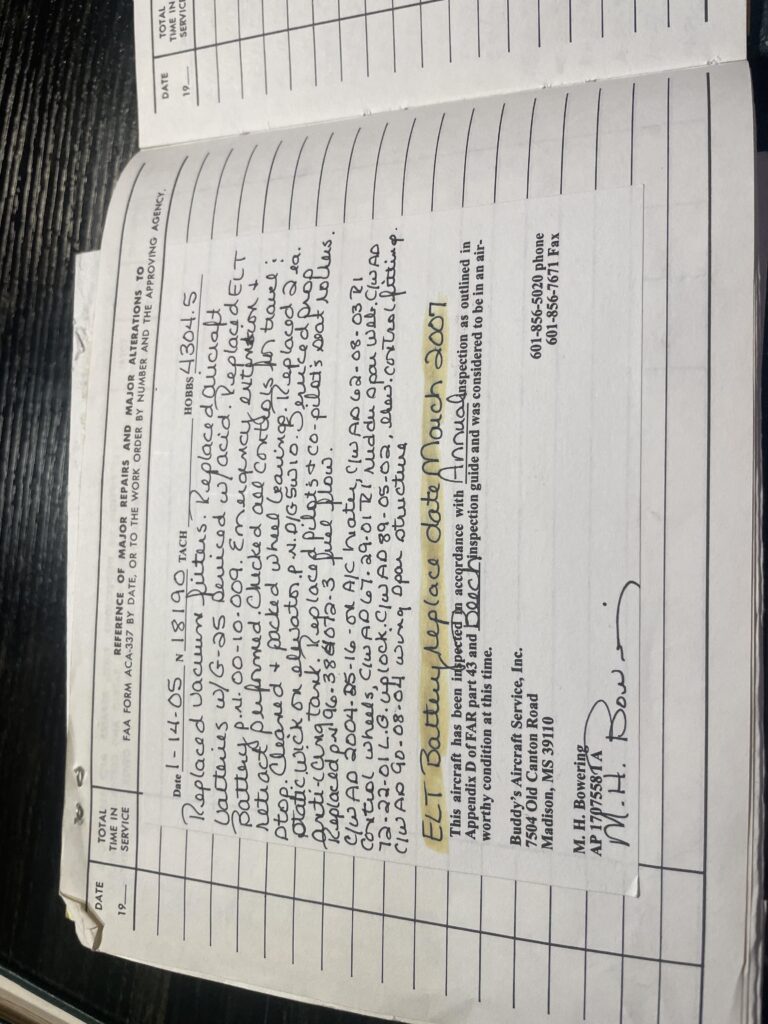 DATE
19
TOTAL
TIME IN
SERVICE
REFERENCE OF MAJOR REPAIRS AND MAJOR ALTERATIONS TO
FAA FORM ACA-337 BY DATE, OR TO THE WORK ORDER BY NUMBER AND THE APPROVING AGENCY.
Date 1-14-05 N 18190 TACH HOBBS 4304.5
Replaced vacuum filters. Replaced aircraft
batteries w/G-25 serviced w/acid. Replaced ELT
Battery p.n. 00-10-009. Emergency extention +
retract performed. Checked all controls for travel &
stop. Cleaned + packed wheel bearings. Replaced 2 ea.
static wick on elevator p.n. D/GSW10. Serviced prop
anti-icing tank. Replaced pilots + co-pilots seat rollers.
Replaced p.n 96-384072-3 fuel flow.
C/W AD 2004-25-16- on A/C heater, C/W AD 62-08-03 R1
control wheels, C/W AD 67-29-01 R1 rudder spar web, C/W AD
72-22-01 L.G. uplock. C/W AD 89-05-02, elev. control fitting.
C/W AD 90-08-04 wing spar structure
ELT Battery replace date March 2007
This aircraft has been inspected in accordance with Annual inspection as outlined in
Appendix D of FAR part 43 and Beech inspection guide and was considered to be in an air-
worthy condition at this time.
Buddy's Aircraft Service, Inc.
7504 Old Canton Road 601-856-5020 phone
Madison, MS 39110 601-856-7671 Fax
M. H. Bowering
AP 1707558 IA
M. H. Bowering
DATE
19
TOTAL
TIME IN
SERVICE